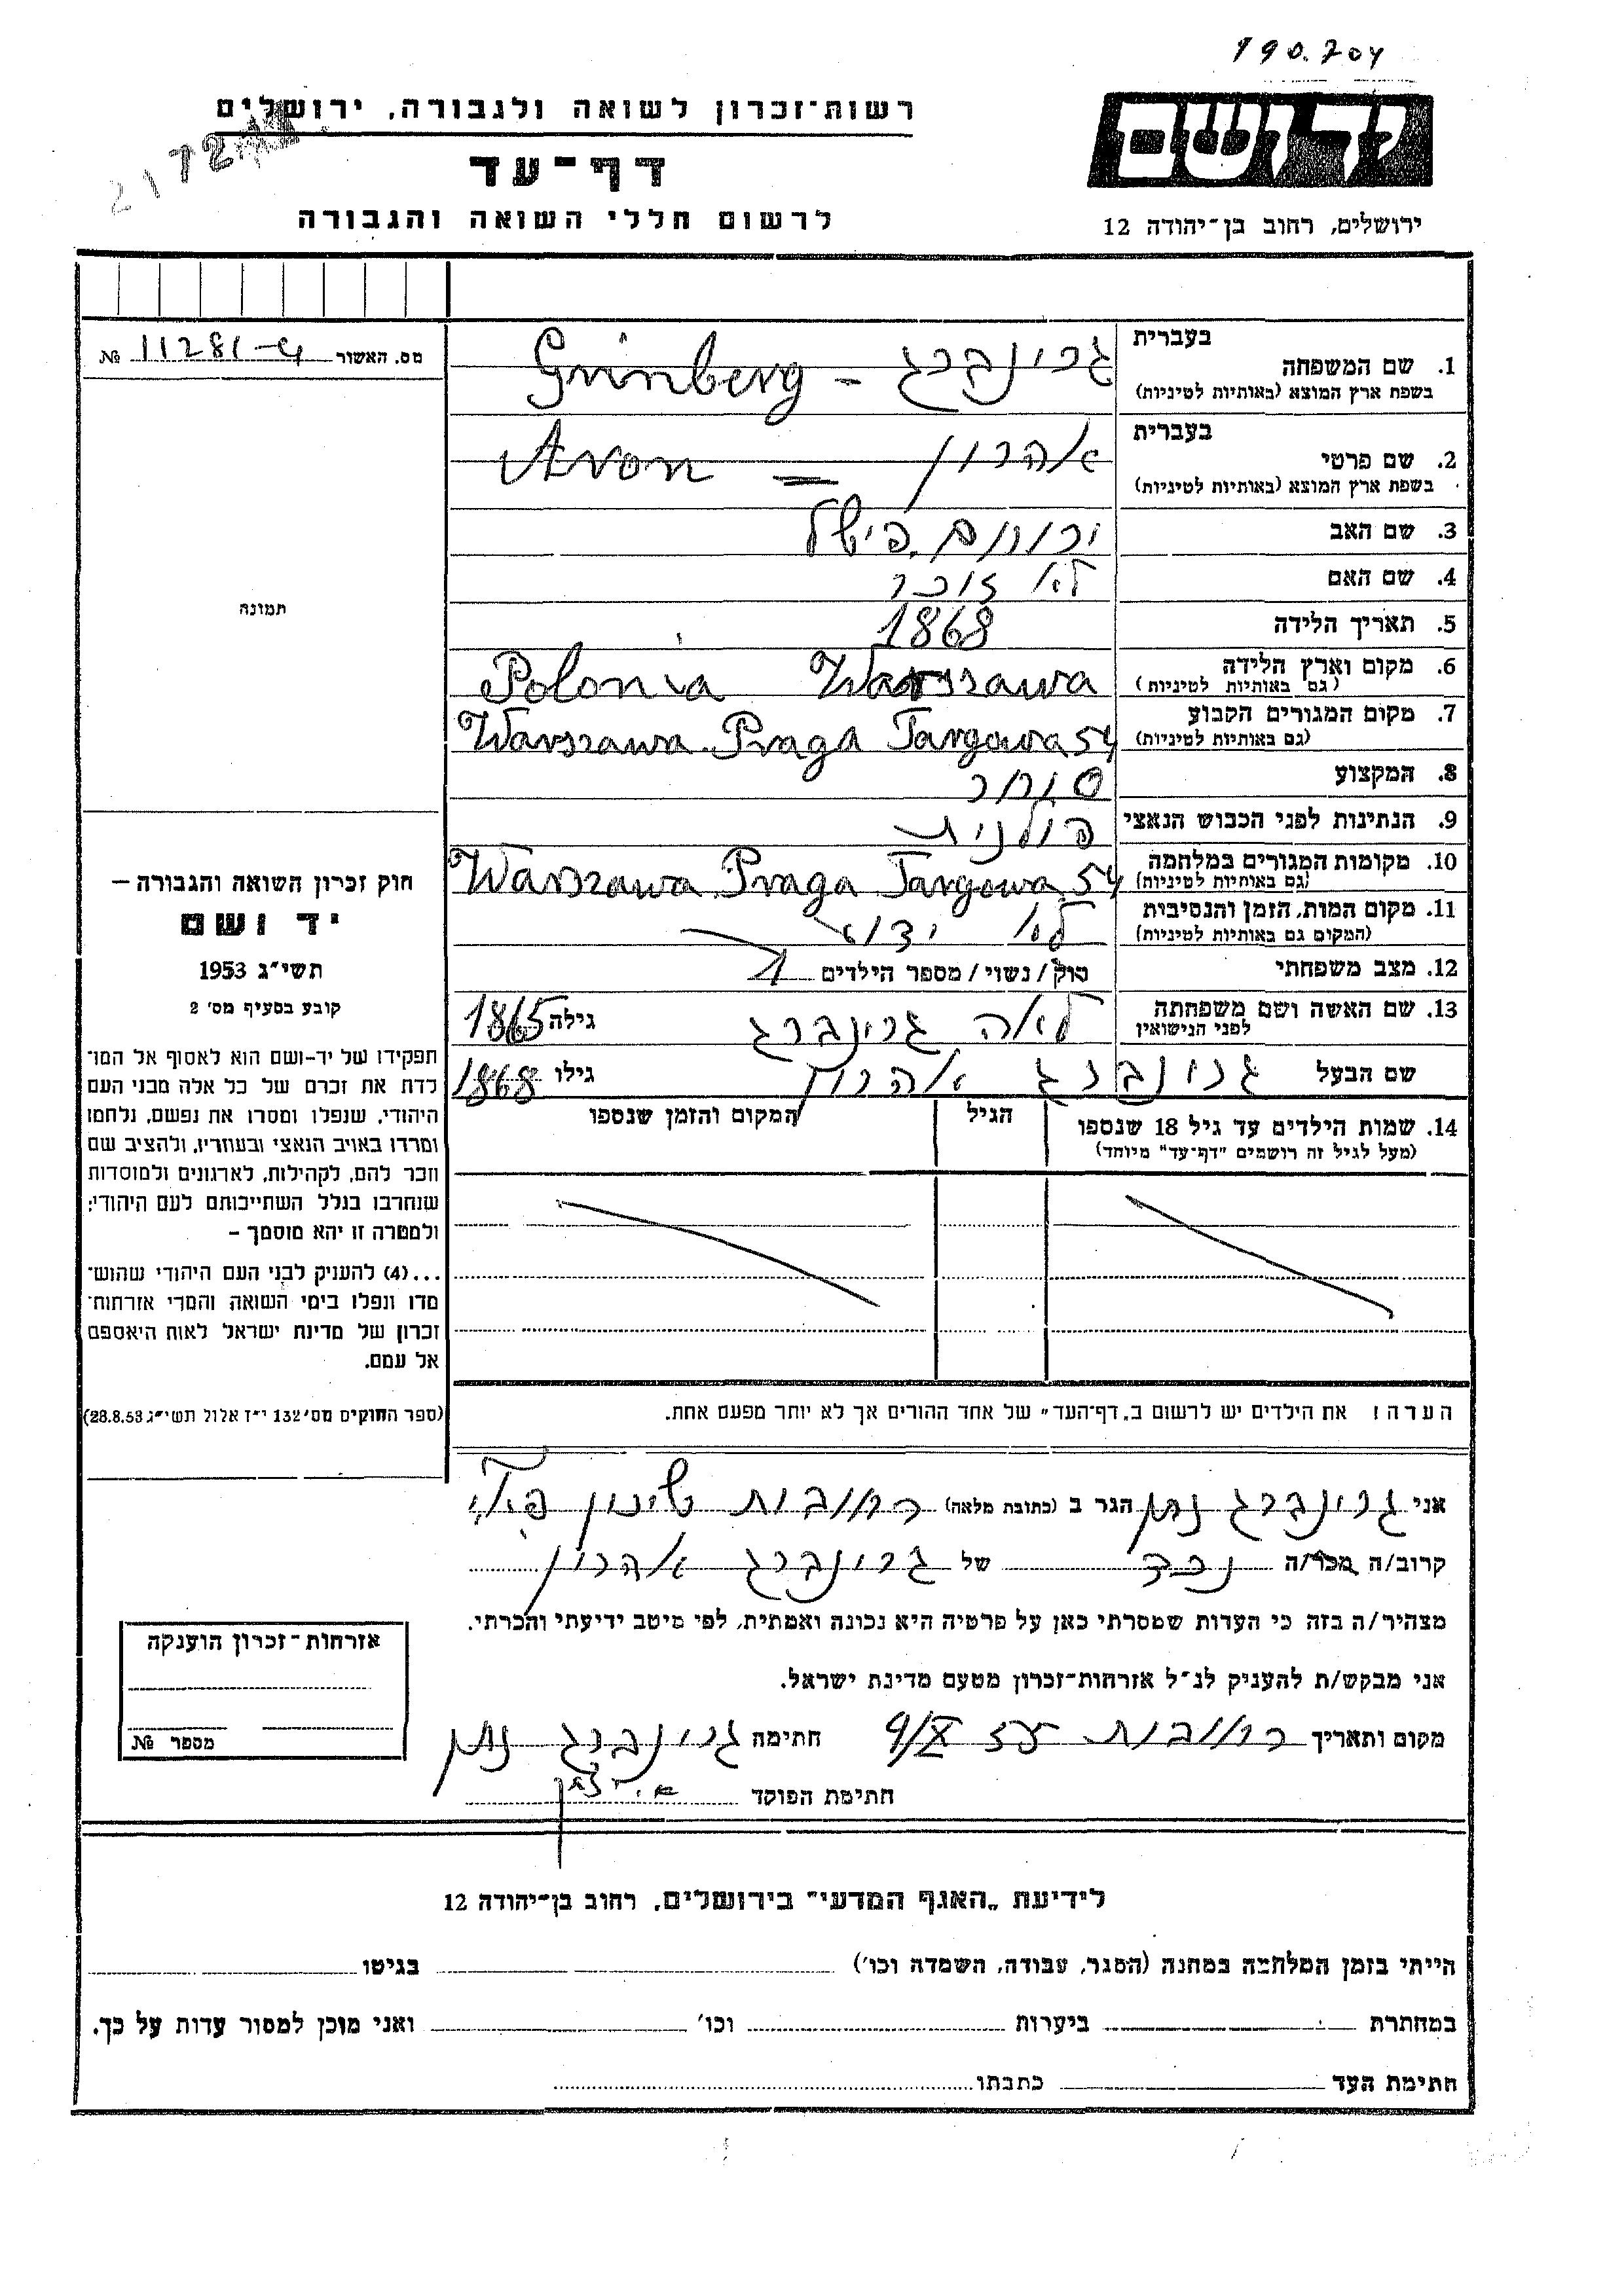 190.704
יד ושם
ירושלים, רחוב בן־יהודה 12
רשות־זכרון לשואה ולגבורה, ירושלים
דף־עד
לרשום חללי השואה והגבורה
מס. האשור 11281-פ №
תמונה
חוק זכרון השואה והגבורה –
יד ושם
תשי״ג 1953
קובע בסעיף מס׳ 2
תפקידו של יד-ושם הוא לאסוף אל המו־
לדת את זכרם של כל אלה מבני העם
היהודי, שנפלו ומסרו את נפשם, נלחמו
ומרדו באויב הנאצי ובעוזריו, ולהציב שם
וזכר להם, לקהילות, לארגונים ולמוסדות
שנחרבו בגלל השתייכותם לעם היהודי;
ולמטרה זו יהא מוסמך –
...(4) להעניק לבני העם היהודי שהוש־
מדו ונפלו בימי השואה והמרי אזרחות־
זכרון של מדינת ישראל לאות היאספם
אל עמם.
(ספר החוקים מס׳ 132 י״ז אלול תשי״ג 28.8.53)
בעברית
1. שם המשפחה גרינברג – Grinberg
בשפת ארץ המוצא (באותיות לטיניות)
בעברית
2. שם פרטי אהרון – Aron
בשפת ארץ המוצא (באותיות לטיניות)
3. שם האב ירוחם פישל
4. שם האם לא זוכר
5. תאריך הלידה 1868
6. מקום וארץ הלידה Warszawa Polonia
(גם באותיות לטיניות)
7. מקום המגורים הקבוע Warszawa. Praga Targowa 54
(גם באותיות לטיניות)
8. המקצוע סוחר
9. הנתינות לפני הכבוש הנאצי פולנית
10. מקומות המגורים במלחמה Warszawa. Praga Targowa 54
(גם באותיות לטיניות)
11. מקום המות, הזמן והנסיבות לא ידוע
(המקום גם באותיות לטיניות)
12. מצב משפחתי רוק/ נשוי/ מספר הילדים 1
13. שם האשה ושם משפחתה לאה גרינברג גילה 1865
לפני הנישואין
שם הבעל גרינברג אהרון גילו 1868
14. שמות הילדים עד גיל 18 שנספו הגיל המקום והזמן שנספו
(מעל לגיל זה רושמים "דף־עד" מיוחד)
הערה: את הילדים יש לרשום ב„דף־העד" של אחד ההורים אך לא יותר מפעם אחת.
אני גרינברג נתן הגר ב (כתובת מלאה) רחובות שיכון פא״י
קרוב/ה מכר/ה נכד של גרינברג אהרון
מצהיר/ה בזה כי העדות שמסרתי כאן על פרטיה היא נכונה ואמתית, לפי מיטב ידיעתי והכרתי.
אני מבקש/ת להעניק לנ״ל אזרחות־זכרון מטעם מדינת ישראל.
מקום ותאריך רחובות 9/X 55 חתימה גרינברג נתן
חתימת הפוקד
אזרחות־זכרון הוענקה
מספר №
לידיעת „האגף המדעי" בירושלים, רחוב בן־יהודה 12
הייתי בזמן המלחמה במחנה (הסגר, עבודה, השמדה וכו׳) בגיטו
במחתרת ביערות וכו׳ ואני מוכן למסור עדות על כך.
חתימת העד כתבתו